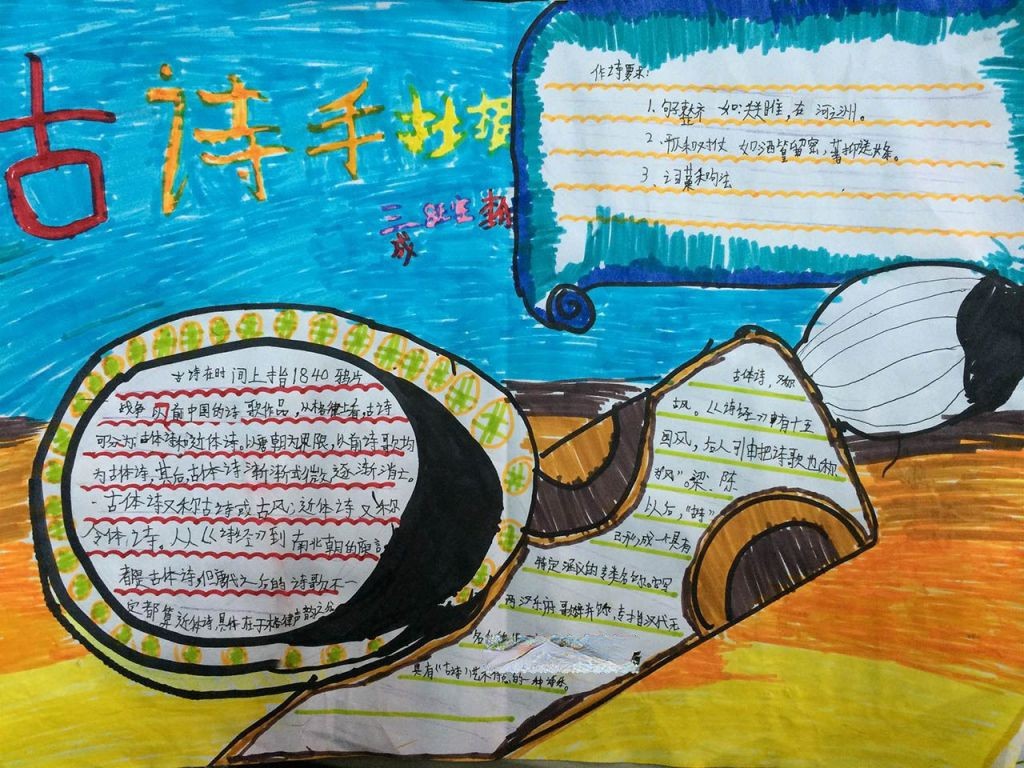 古诗手抄报
三班
作诗要求:
1、句整齐 如:关雎,在河之洲。
2、
3、词藻和句法
古诗在时间上指1840鸦片
战争以前中国的诗歌作品,从格律上看,古诗
可分为古体诗和近体诗。以唐朝为界限,以前诗歌均
为古体诗,其后,古体诗渐渐式微,逐渐消亡。
古体诗又称古诗或古风;近体诗又称
今体诗。从《诗经》到南北朝的庾信,
都是古体诗,但唐代之后的诗歌不一
定都算近体诗,具体在于格律声韵之分
古体诗,又称
古风。《诗经》中有十五
国风,后人引申把诗歌也称
为“风”。梁、陈
以后,“古诗”
已形成一个具有
特定涵义的专类名
两汉乐府歌辞并称,专指汉代无
名
具有“古诗”艺术的一种诗体。